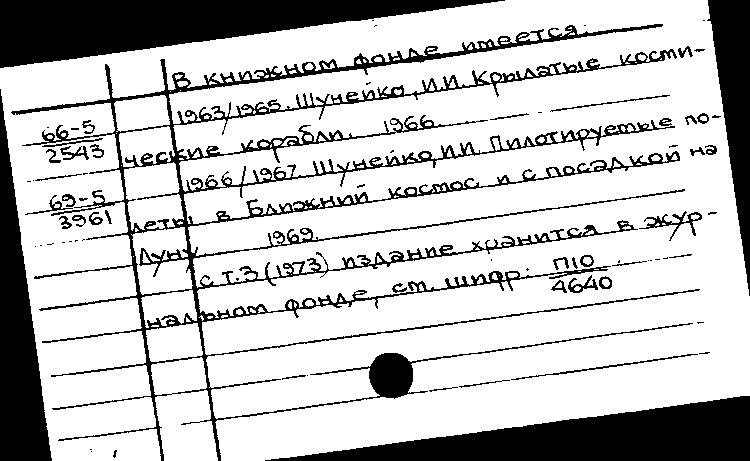 В книжном фонде имеется:
66-5 1963/1965. Шунейко, И.И. Крылатые косми-
2543 ческие корабли. 1966.
69-5 1966/1967. Шунейко, И.И. Пилотируемые по-
3961 леты в Ближний космос и с посадкой на
Луну 1969.
с т.3 (1973) издание хранится в жур-
нальном фонде, см. шифр: П10
4640